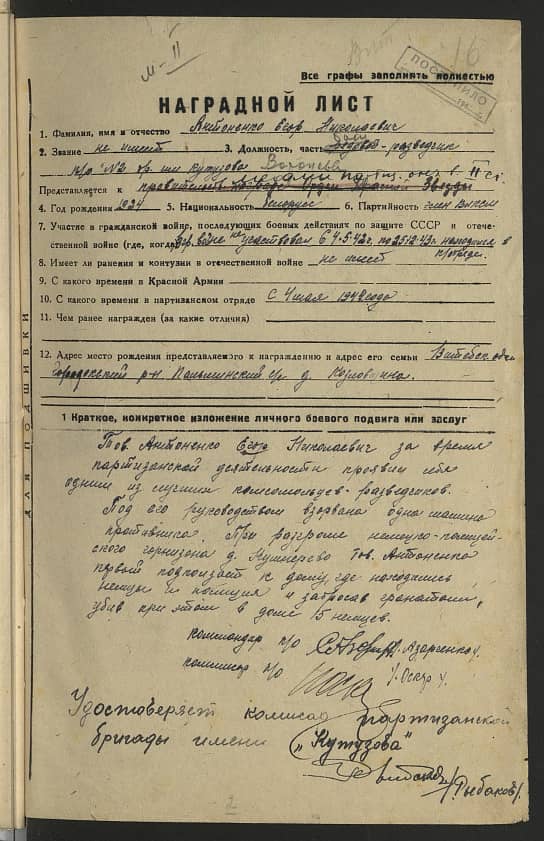 М-II
16
ПОСТУПИЛО
Все графы заполнять полностью
НАГРАДНОЙ ЛИСТ
1. Фамилия, имя и отчество Антоненко Егор Николаевич
2. Звание не имеет 3. Должность, часть разведчик
п/о №2 бр. им Кутузова
Представляется к Орден Красной Звезды медали II ст.
4. Год рождения 1924 5. Национальность белорус 6. Партийность член ВЛКСМ
7. Участие в гражданской войне, последующих боевых действиях по защите СССР и отече-
ственной войне (где, когда) не участвовал с 4.5.42г. по 25.12.43г. находится в
8. Имеет ли ранения и контузии в отечественной войне не имеет
9. С какого времени в Красной Армии
10. С какого времени в партизанском отряде с 4 мая 1942 года
11. Чем ранее награжден (за какие отличия)
12. Адрес место рождения представляемого к награждению и адрес его семьи Витебск. обл
Городокский р-н. с/с д.
1 Краткое, конкретное изложение личного боевого подвига или заслуг
Тов. Антоненко Егор Николаевич за время
партизанской деятельности проявил себя
одним из лучших комсомольцев-разведчиков.
Под его руководством взорвана одна машина
противника. При разгроме немецко-полицей-
ского гарнизона д. тов. Антоненко
первый подползает к дому, где находились
немцы и полиция и забросав гранатами,
убив при этом в доме 15 немцев.
командир п/о /Азарченко/.
комиссар п/о
Удостоверяет комиссар партизанской
бригады имени „Кутузова"
/Рыбаков/.
2
ДЛЯ ПОДШИВКИ